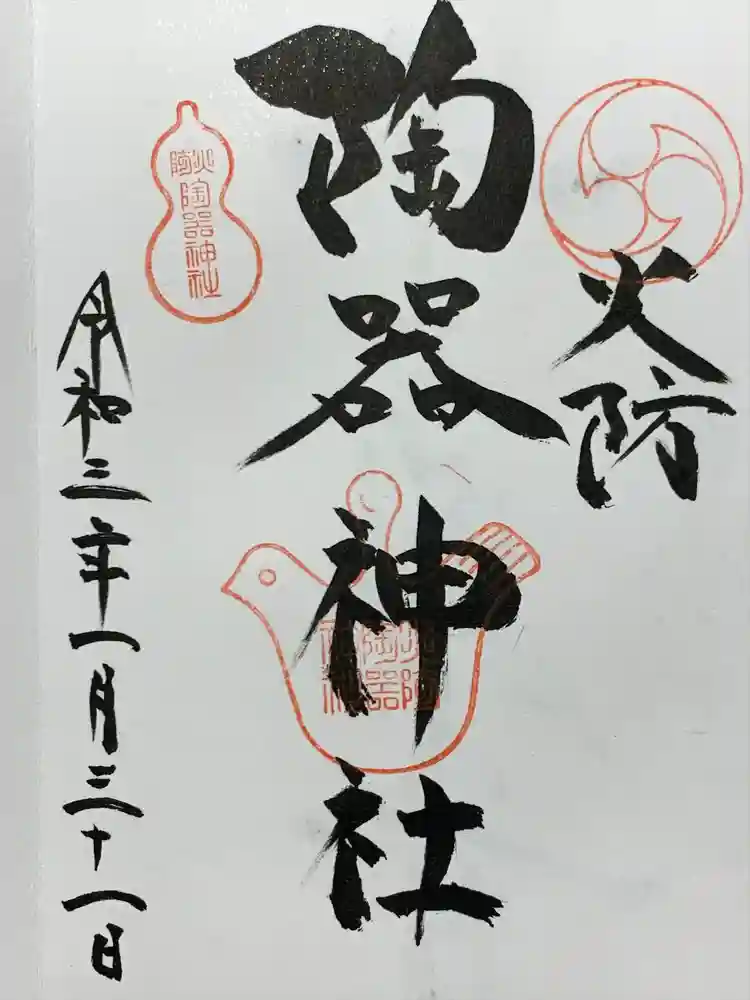 火防
陶器神社
令和三年一月三十一日
火防
陶器神社
火防
陶器
神社